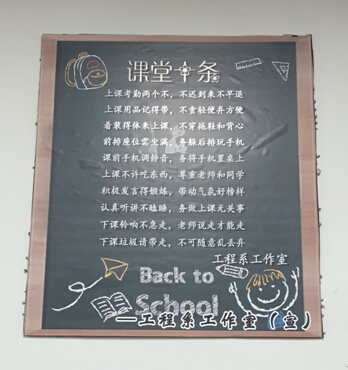 课堂十条
上课考勤两个不，不迟到来不早退
上课用品记得带，不贪轻便弃方便
着装得体来上课，不穿拖鞋和背心
前排座位需坐满，务躲后排玩手机
课前手机调静音，务将手机置桌上
上课不许吃东西，尊重老师和同学
积极发言得锻炼，带动气氛好榜样
认真听讲不瞌睡，务做上课无关事
下课铃响不急走，老师说走才能走
下课垃圾请带走，不可随意乱丢弃
工程系工作室
Back to
School
—工程系工作室（宣）